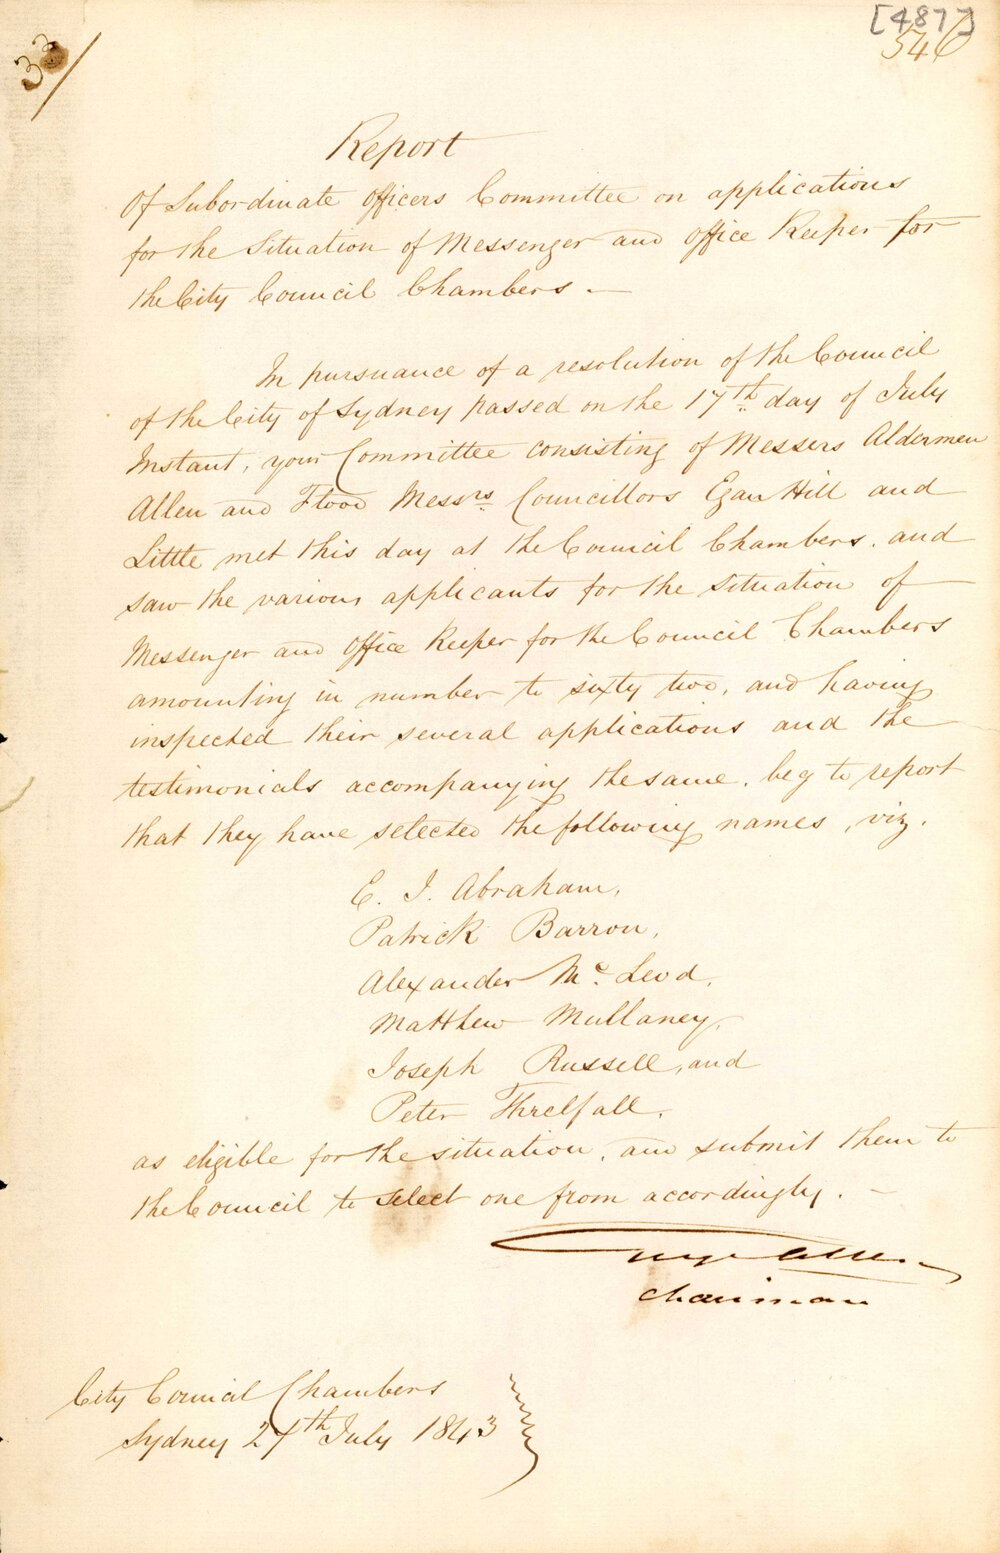 33/
[487]
546
Report
Of Subordinate Officers Committee on applications
for the Situation of Messenger and Office Keeper for
the City Council Chambers. —
In pursuance of a resolution of the Council
of the City of Sydney passed on the 17th day of July
Instant, your Committee consisting of Messers Aldermen
Allen and Flood Messrs. Councillors Egan Hill and
Little met this day at the Council Chambers. and
saw the various applicants for the situation of
Messenger and Office Keeper for the Council Chambers
amounting in number to sixty two, and having
inspected their several applications and the
testimonials accompanying the same. beg to report
that they have selected the following names, viz.
E. I. Abraham,
Patrick Barron,
Alexander Mc. Leod,
Matthew Mullaney,
Joseph Russell, and
Peter Threlfall.
as eligible for the situation, and submit them to
the Council to select one from accordingly. —
George Allen
Chairman
City Council Chambers
Sydney 27th July 1843